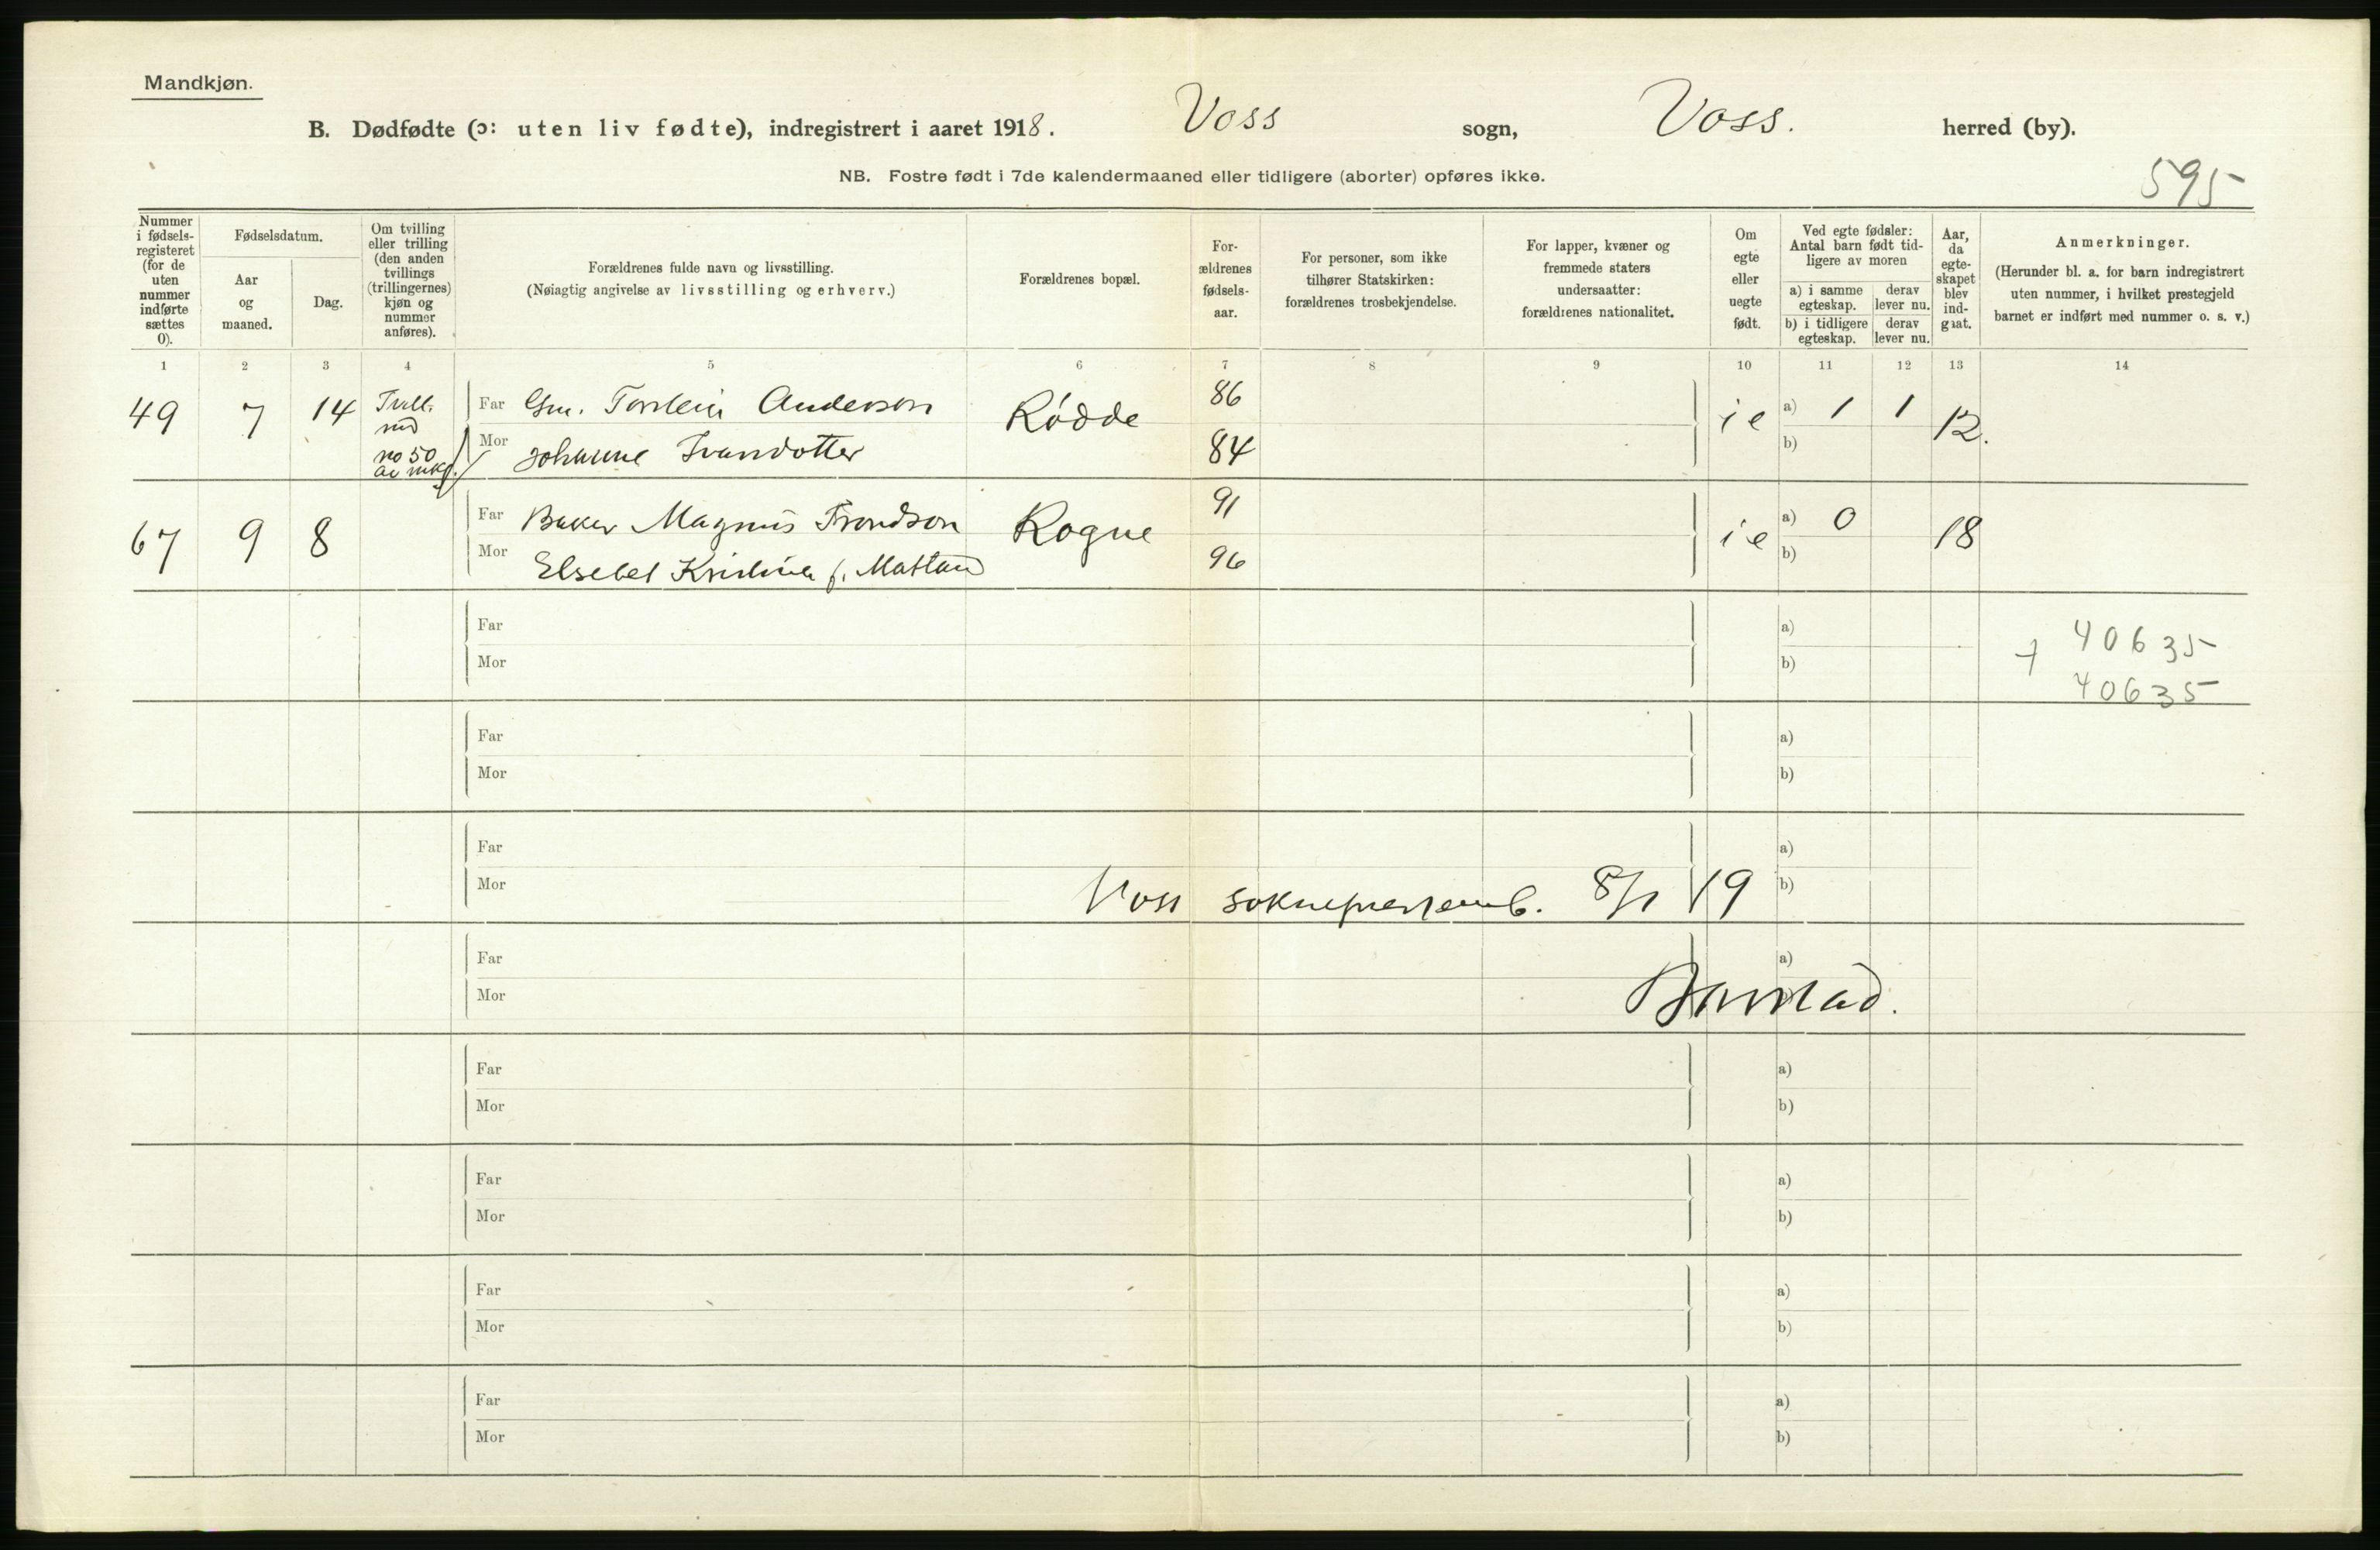 Mandkjøn.
B. Dødfødte (ɔ: uten liv fødte), indregistrert i aaret 1918. Voss sogn, Voss. herred (by).
NB. Fostre født i 7de kalendermaaned eller tidligere (aborter) opføres ikke.
595
Nummer i fødsels-registeret (for de uten nummer indførte sættes 0).
Fødselsdatum.
Aar og maaned.
Dag.
Om tvilling eller trilling (den anden tvillings (trillingernes) kjøn og nummer anføres).
Forældrenes fulde navn og livsstilling.
(Nøiagtig angivelse av livsstilling og erhverv.)
Forældrenes bopæl.
For-ældrenes fødsels-aar.
For personer, som ikke tilhører Statskirken: forældrenes trosbekjendelse.
For lapper, kvæner og fremmede staters undersaatter: forældrenes nationalitet.
Om egte eller uegte født.
Ved egte fødsler: Antal barn født tid-ligere av moren
a) i samme egteskap. derav lever nu.
b) i tidligere egteskap. derav lever nu.
Aar, da egte-skapet blev ind-gaat.
Anmerkninger.
(Herunder bl. a. for barn indregistrert uten nummer, i hvilket prestegjeld barnet er indført med nummer o. s. v.)
1 2 3 4 5 6 7 8 9 10 11 12 13 14
49 7 14 Tvill. med no 50 av mkj. Far Gm. Torstein Anderson Rødde 86 ie a) 1 1 12.
Mor Johanne Ivarsdotter 84 b)
67 9 8 Far Baker Magnus Trondson Rogne 91 ie a) 0 18
Mor Elsebet Kristine f. Mattan 96 b)
Far a) + 40635
Mor b) 40635
Far a)
Mor b)
Far a)
Mor Voss sokneprestemb. 8/1 19 b)
Far a)
Mor
Far a)
Mor b)
Far a)
Mor b)
Far a)
Mor b)
Far a)
Mor b)